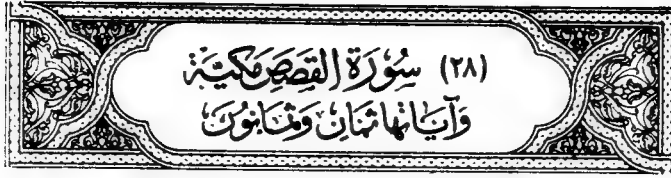 (٢٨) سُورَةُ القَصَصِ مَكِيَّة
وَآيَاتُهَا ثَمَانٍ وَثَمَانُونَ